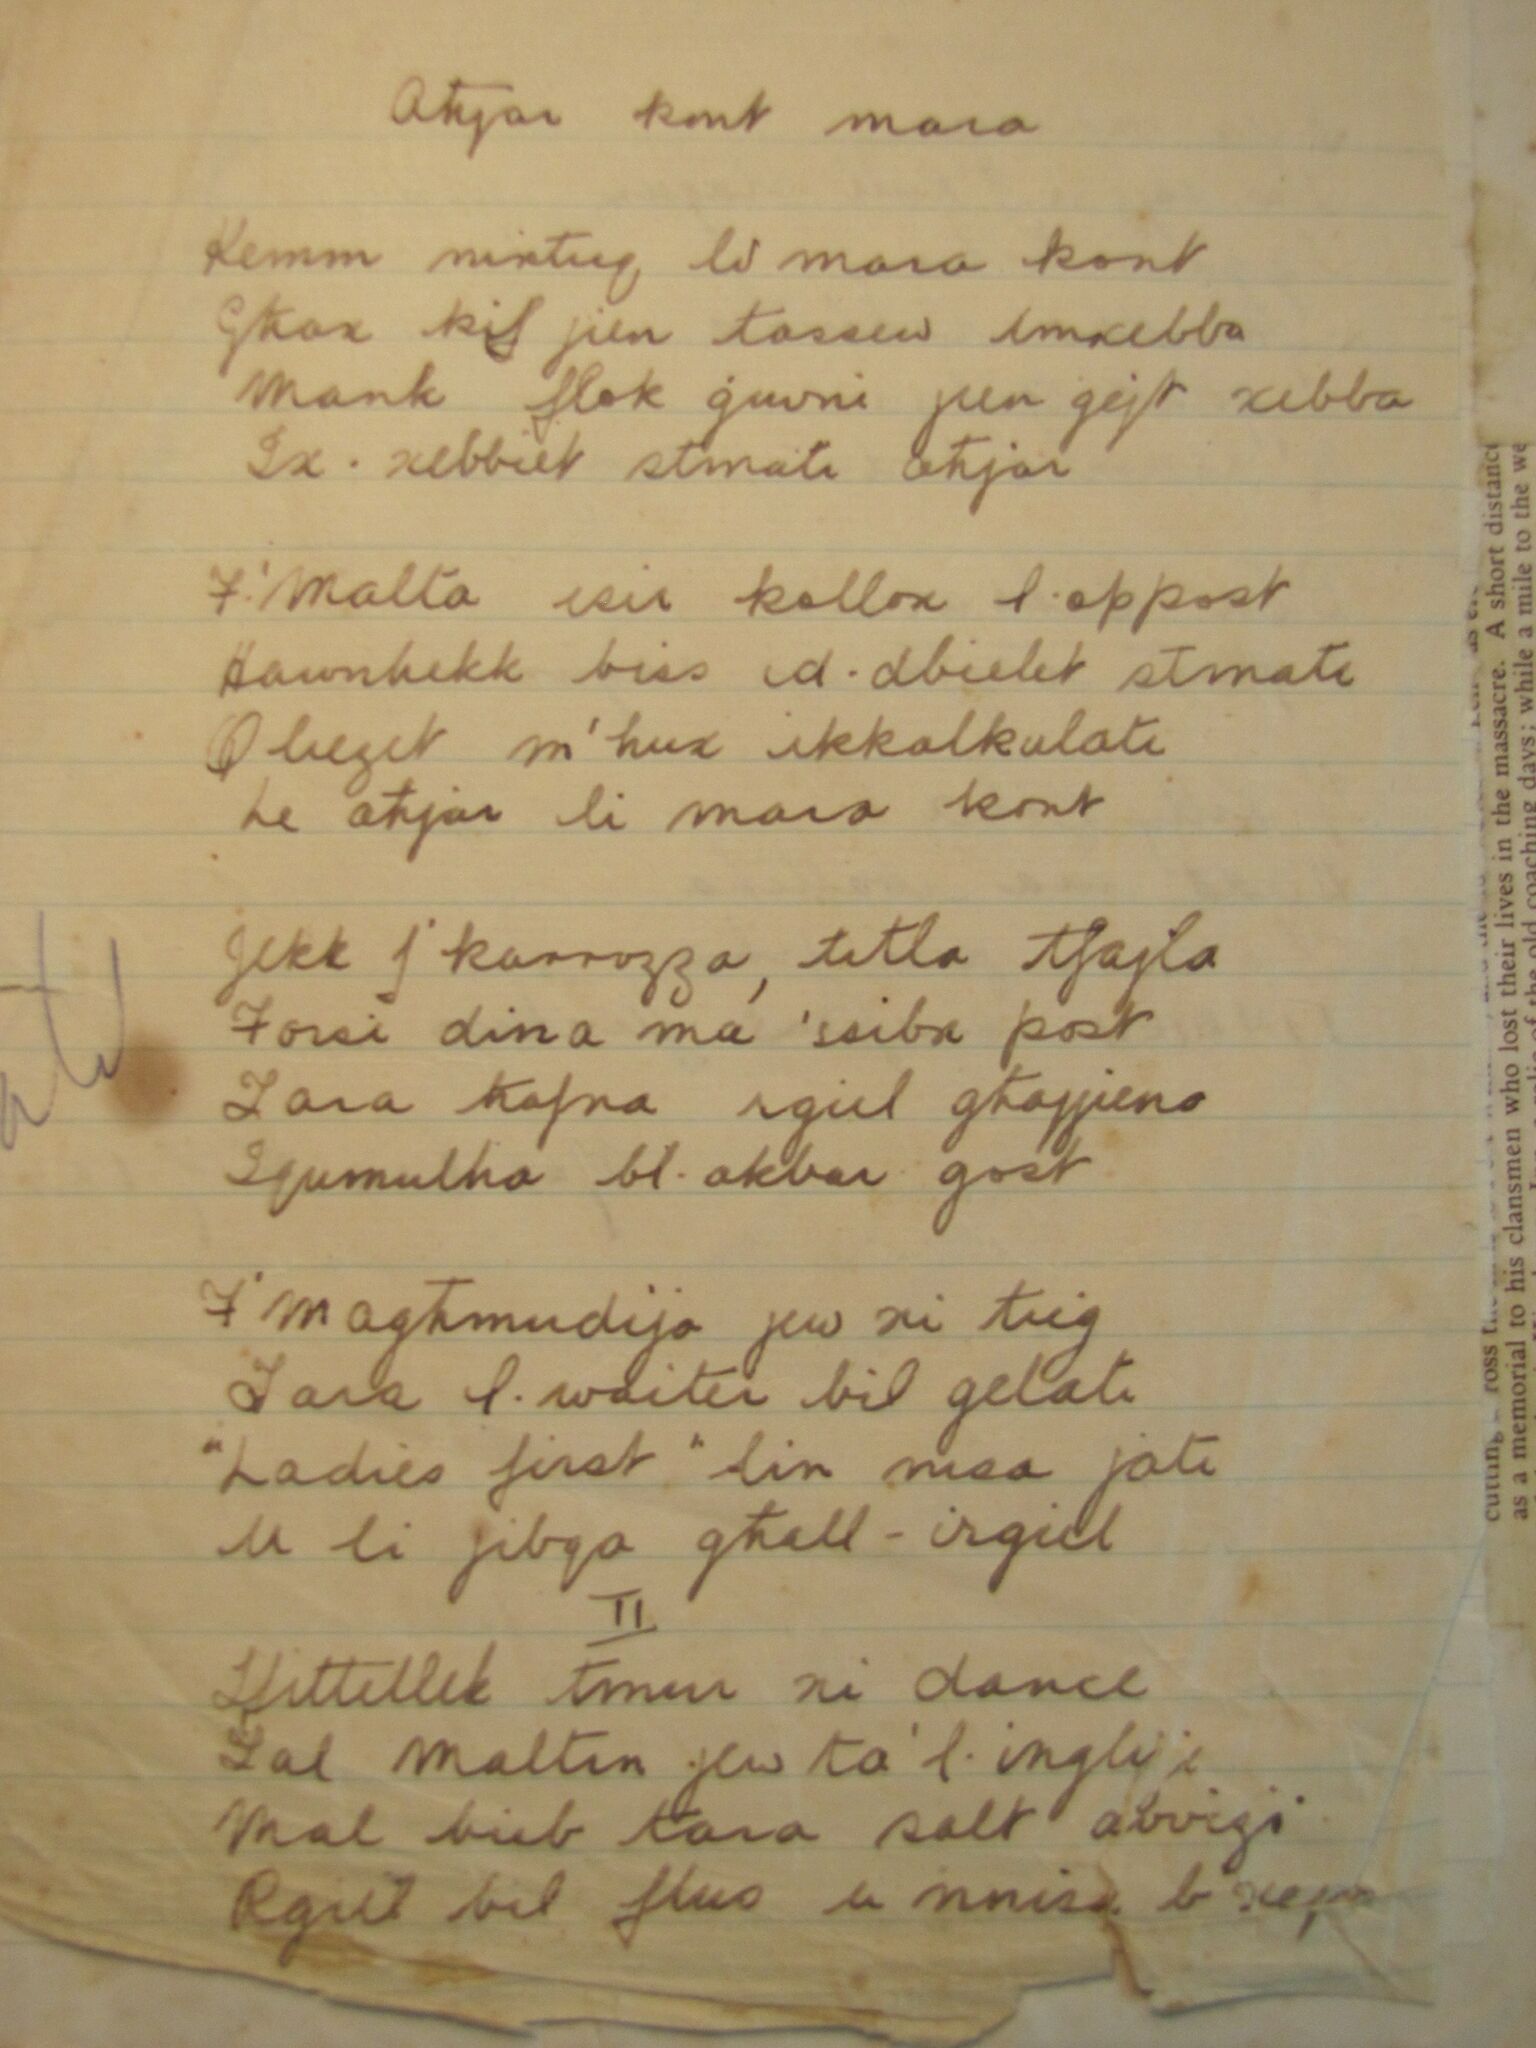 Aħjar kont mara
Kemm nixtieq li mara kont
Għax kif jien tassew imxebba
Mank flok ġuvni jien ġejt xebba
Ix-xebbiet stmati aħjar
F'Malta isir kollox l-oppost
Hawnhekk biss id-dbielet stmati
Oħxejt m'hux ikkalkulati
Le aħjar li mara kont
Jekk f'karrozza, titla tfajla
Forsi dina ma 'ssibx post
Tara ħafna rgiel għajjiena
Iqumulha bl-akbar gost
F'Magħmudija jew xi tieġ
Tara l-waiter bil ġelati
"Ladies first" lin nisa jati
U li jibqa għall-irgiel
II
Jittellek tmur xi dance
Tal Maltin jew ta' l-ingliżi
Mal bieb tara salt avviżi
Rgiel bil flus u nnisa b'xejn
cutting
as a memorial to his clansmen who lost their lives in the massacre. A short distance
of the old coaching days; while a mile to the we